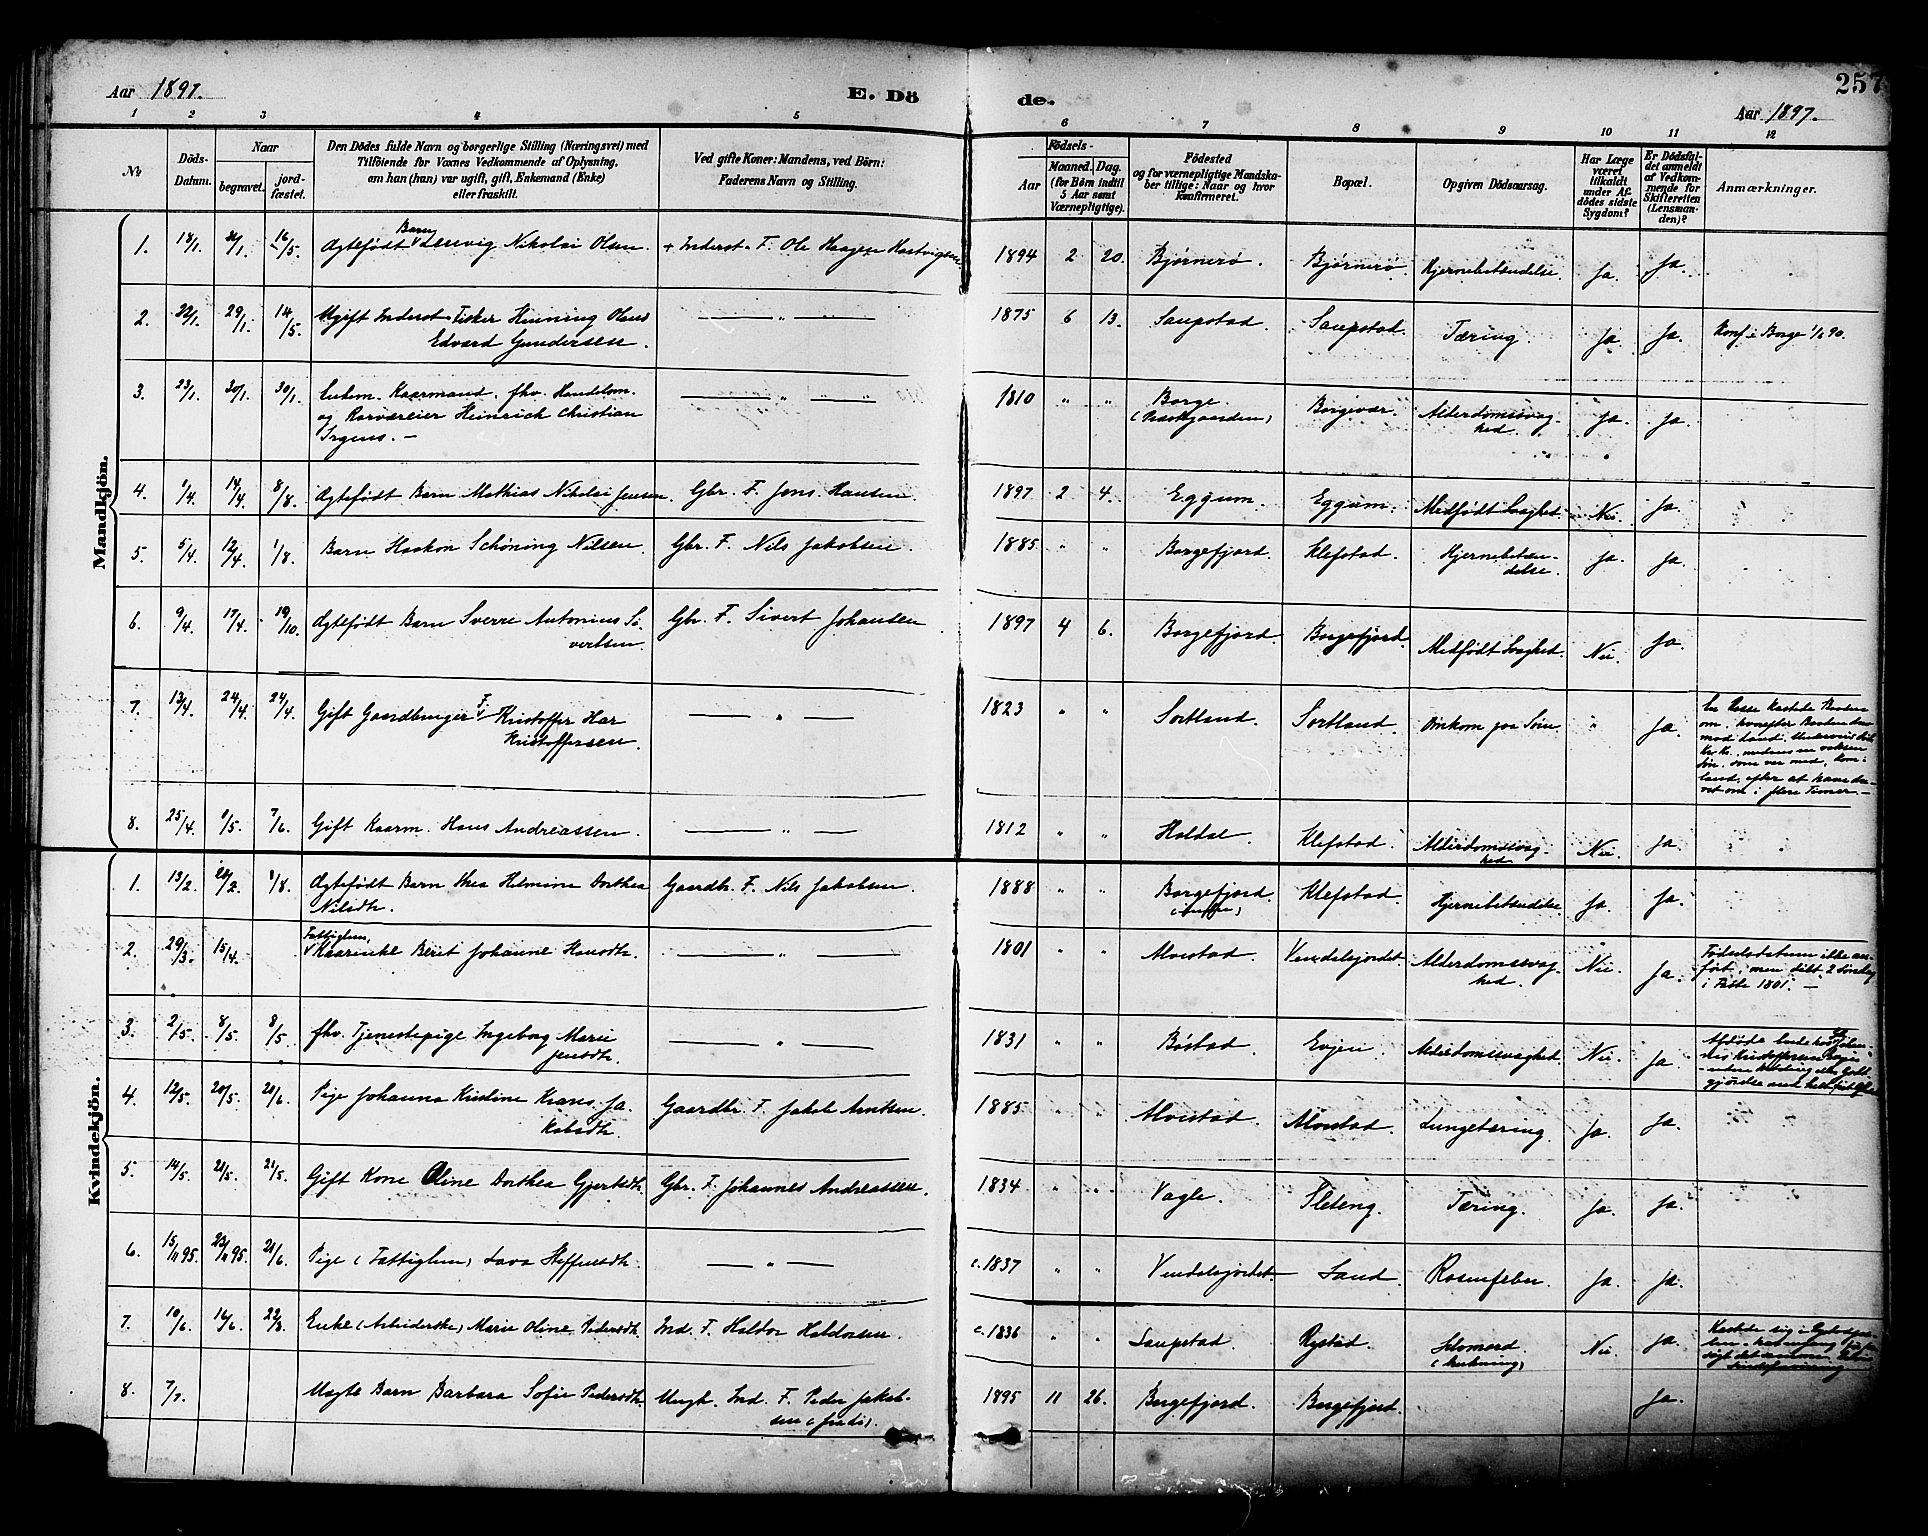 Aar 1897.
E. Döde.
257
Aar 1897.
1 2 3 4 5 6 7 8 9 10 11 12
No
Döds-Datum.
Naar
begravet.
jordfæstet.
Den Dödes fulde Navn og borgerlige Stilling (Næringsvei) med
Tilföiende for Voxnes Vedkommende af Oplysning,
om han (hun) var ugift, gift, Enkemand (Enke)
eller fraskilt.
Ved gifte Koner: Mandens, ved Börn:
Faderens Navn og Stilling.
Födsels-
Aar
Maaned. Dag.
(for Börn indtil
5 Aar samt
Værnepligtige).
Födested
og for værnepligtige Mandska-
ber tillige: Naar og hvor
konfirmeret.
Bopæl.
Opgiven Dödsaarsag.
Har Læge
været
tilkaldt
under Af-
dödes sidste
Sygdom?
Er Dödsfal-
det anmeldt
af Vedkom-
mende for
Skifteretten
(Lensman-
den)?
Anmærkninger.
Mandkjön.
1. 18/1. 16/5. Ægtefødt Barn Nikolai Olsen. Inderst F. Ole Haagen Hartvigsen 1894 2 20. Bjørnerö. Bjørnerö. Hjernebetændelse. Ja. Ja.
2. 22/1. 29/1. 14/5. Ugift Inderst Fisker Henning Olaus
Edvard Gundersen. — „ — 1875 6 13. Saupstad. Saupstad. Tæring. Ja. Ja. Konf. i Borge 1/6 90.
3. 23/1. 30/1. 30/1. Enkem. Kaarmand, fhv. Handelsm.
og Rorværeier Heinrich Christian
Irgens. — — „ — „ 1810 „ „ Borge.
(Præstgaarden) Borgevær. Alderdomssvag-
hed. Ja. Ja.
4. 1/4. 14/4. 8/8. Ægtefødt Barn Mathias Nikolai Jensen. Gbr. F. Jens Hansen. 1897 2 4. Eggum. Eggum. Medfødt Svaghed. Nei. Ja.
5. 5/4. 12/4. 1/8. Barn Haakon Schöning Nilsen. Gbr. F. Nils Jakobsen. 1885. „ „ Borgefjord. Klefstad. Hjernebetæn-
delse. Ja. Ja.
6. 9/4. 17/4. 19/10. Ægtefødt Barn Sverre Antonius Si-
vertsen. Gbr. F. Sivert Johansen 1897 4 6. Borgefjord. Borgefjord. Medfødt Svaghed. Nei. Ja.
7. 13/4. 24/4. 24/4. Gift Gaardbruger F. Kristoffer
Kristoffersen. — „ — 1823 „ „ Sortland. Sortland. Omkom paa Søen „ Ja. En kastede Baaden
om, hvorefter Baaden drev
mod Land. Underveis
medens en voksen
Søn, som var med, kom i
Land, efter at have dre-
vet om i flere Timer. —
8. 25/4. 1/5. 7/6. Gift Kaarm. Hans Andreassen. — „ — 1812 „ „ Holdal. Klefstad. Alderdomssvag-
hed. Nei. Ja.
Kvindekjön.
1. 13/2. 1/8. Ægtefødt Barn Thea Helmine Dorthea
Nilsdtr. Gaardb. F. Nils Jakobsen. 1888 „ „ Borgefjord. Klefstad. Hjernebetændelse Ja. Ja.
2. 29/3. 15/4. Fattiglem,
Kaarenke Berit Johanne Hansdtr. — „ — 1801 „ „ Alvestad. Vendelsjordet. Alderdomssvag-
hed. Nei. Ja. Fødselsdatum ikke an-
ført, men døbt 2 Søndag
i Faste 1801. —
3. 2/5. 8/5. 8/5. fhv. Tjenestepige Ingeborg Marie
Jensdtr. — „ — 1831 „ „ Böstad. Evjen. Alderdomssvaghed. Nei. Ja. Afdøde
4. 12/5. 20/5. 20/6. Pige Johanna Kristine Hans Ja-
kobsdtr. Gaardbr. F. Jakob Arntsen. 1885. „ „ Alvestad. Alvestad. Lungetæring. Ja. Ja.
5. 14/5. 21/5. 21/5. Gift Kone Oline Dorthea Gjertsdtr. Gbr. F. Johannes Andreassen. 1834 „ „ Vagle. Sleteng. Tæring. Ja. Ja.
6. 15/11 95. 23/11 95. 21/6. Pige (Fattiglem) Lava Steffensdtr. — „ — c. 1837 „ „ Vendelsjordet. Sand. Rosenfeber. Ja. Ja.
7. 10/6. 16/6. 22/8. Enke (Arbeiderske) Marie Oline Pedersdtr. Ind. F. Haldor Haldorsen. c. 1836 „ „ Saupstad. Rystad. Selvmord
(Drukning) Nei. Ja.
8. 7/7. Uægte Barn Barbara Sofie Pedersdtr. Ungk. Ind. F. Peder Jakob-
sen 1895 11 26. Borgefjord. Borgefjord. Ja.